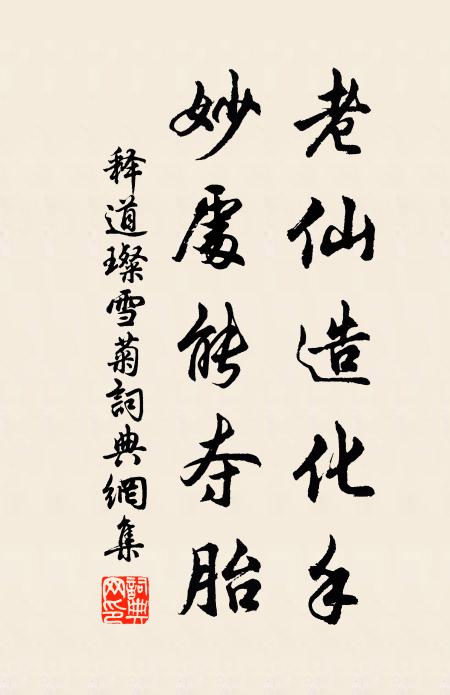 老仙造化手
妙處能夺胎
释道璨雪菊詞典網集
詞典网印